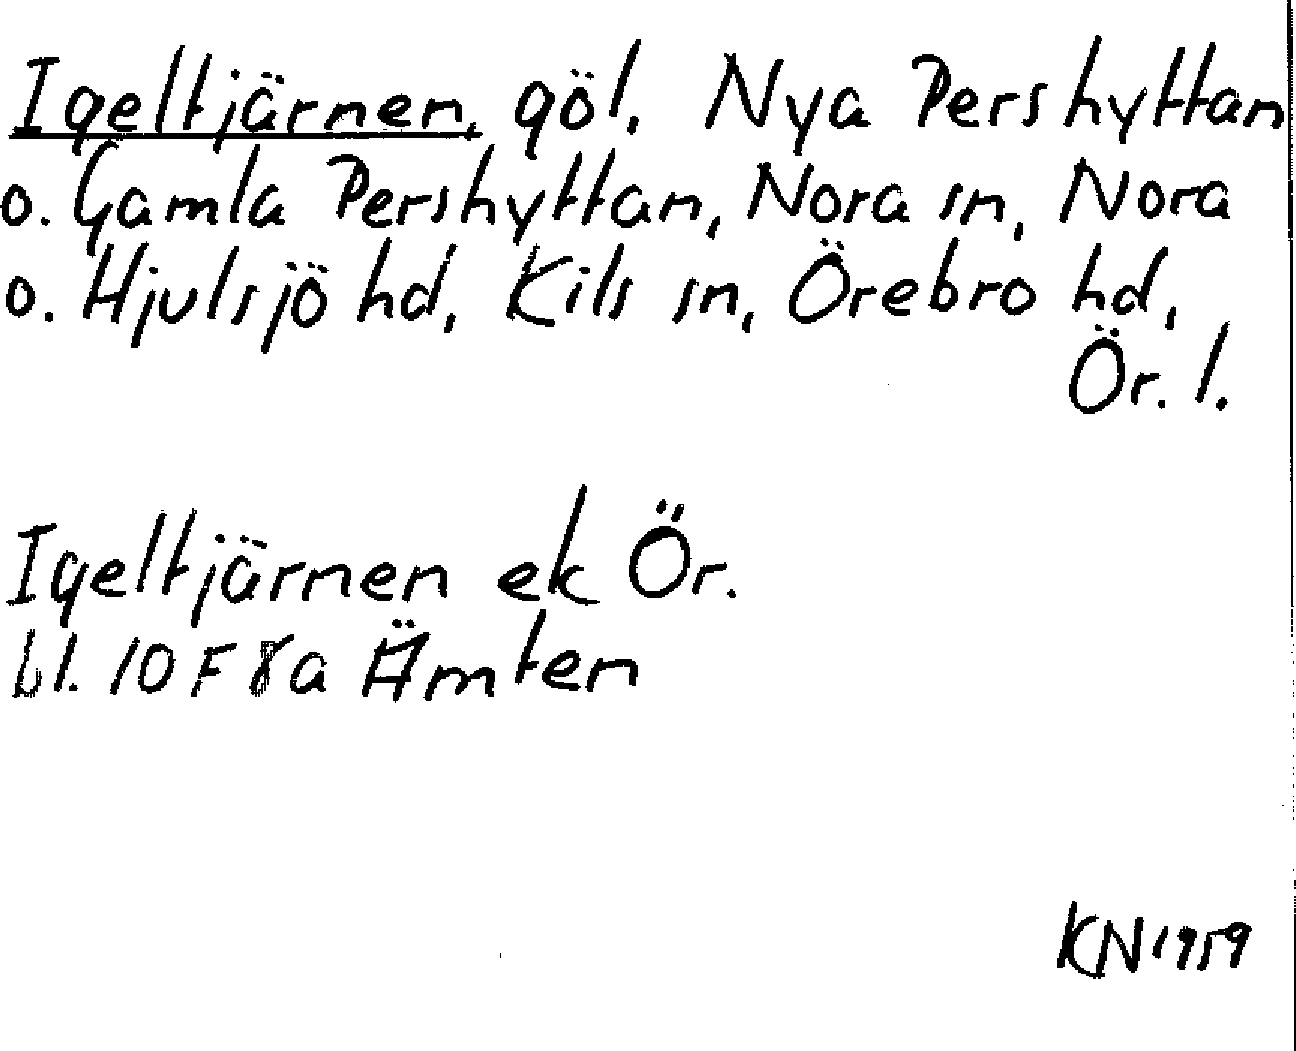 Igeltjärnen, göl, Nya Pershyttan
o. Gamla Pershyttan, Nora sn, Nora
o. Hjulsjö hd, Kils sn, Örebro hd,
Ör. l.
Igeltjärnen ek Ör.
bl. 10 F 8a Ämten
KN 1959